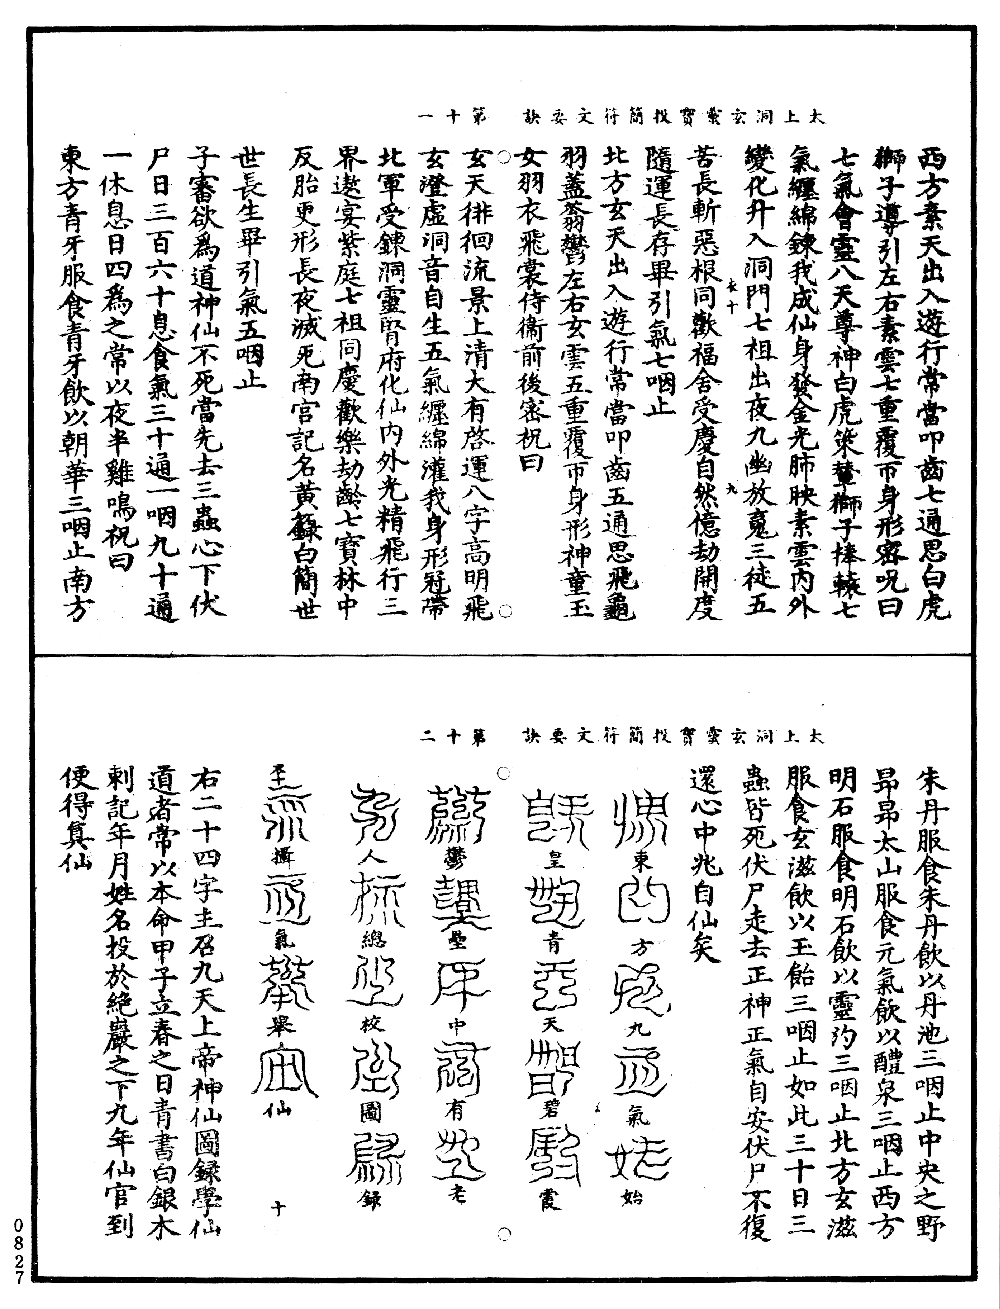 太上洞玄靈寶投簡符文要訣　第十一
西方素天出入遊行常當叩齒七通思白虎
獅子導引左右素雲七重覆帀身形密呪曰
七氣會靈八天尊神白虎策輦獅子捧轅七
氣纏綿鍊我成仙身發金光肺映素雲內外
變化升入洞門七祖出夜九幽放䰟三徒五
苦長斬惡根同歡福舍受慶自然億劫開度
隨運長存畢引氣七咽止
北方玄天出入遊行常當叩齒五通思飛龜
羽蓋蓊鬱左右玄雲五重覆帀身形神童玉
女羽衣飛裳侍衛前後密祝曰
玄天徘徊流景上清大有啓運八字高明飛
玄澄虛洞音自生五氣纏綿灌我身形冠帶
北軍受鍊洞靈腎府化仙內外光精飛行三
界遨宴紫庭七祖同慶歡樂劫齡七寶林中
反胎更形長夜滅死南宮記名黃籙白簡世
世長生畢引氣五咽止
子審欲爲道神仙不死當先去三蟲心下伏
尸日三百六十息食氣三十通一咽九十通
一休息日四爲之常以夜半雞鳴祝曰
東方青牙服食青牙飲以朝華三咽止南方
太上洞玄靈寶投簡符文要訣　第十二
朱丹服食朱丹飲以丹池三咽止中央之野
昂昂太山服食元氣飲以醴泉三咽止西方
明石服食明石飲以靈㳑三咽止北方玄滋
服食玄滋飲以玉飴三咽止如此三十日三
蟲皆死伏尸走去正神正氣自安伏尸不復
還心中兆自仙矣
東方九氣始
皇青天碧霞
鬱壘中有老
人總校圖錄
攝氣舉仙
右二十四字主召九天上帝神仙圖錄學仙
道者常以本命甲子立春之日青書白銀木
刺記年月姓名投於絕巖之下九年仙官到
便得眞仙
0827